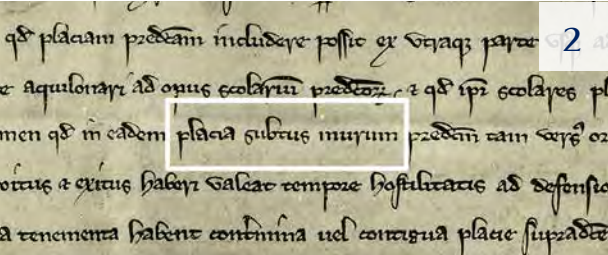 2
qd placiam predcam includere possit ex utraqz parte
aquilonari ad opus scolariu predcor, & qd ipi scolares pl
men qd in eadem placia subtus murum predcm tam vers or
oitus & exitus haberi valeat tempore hostilitatis ad defensio
a tenementa habent contmina vel contigua placie supradce